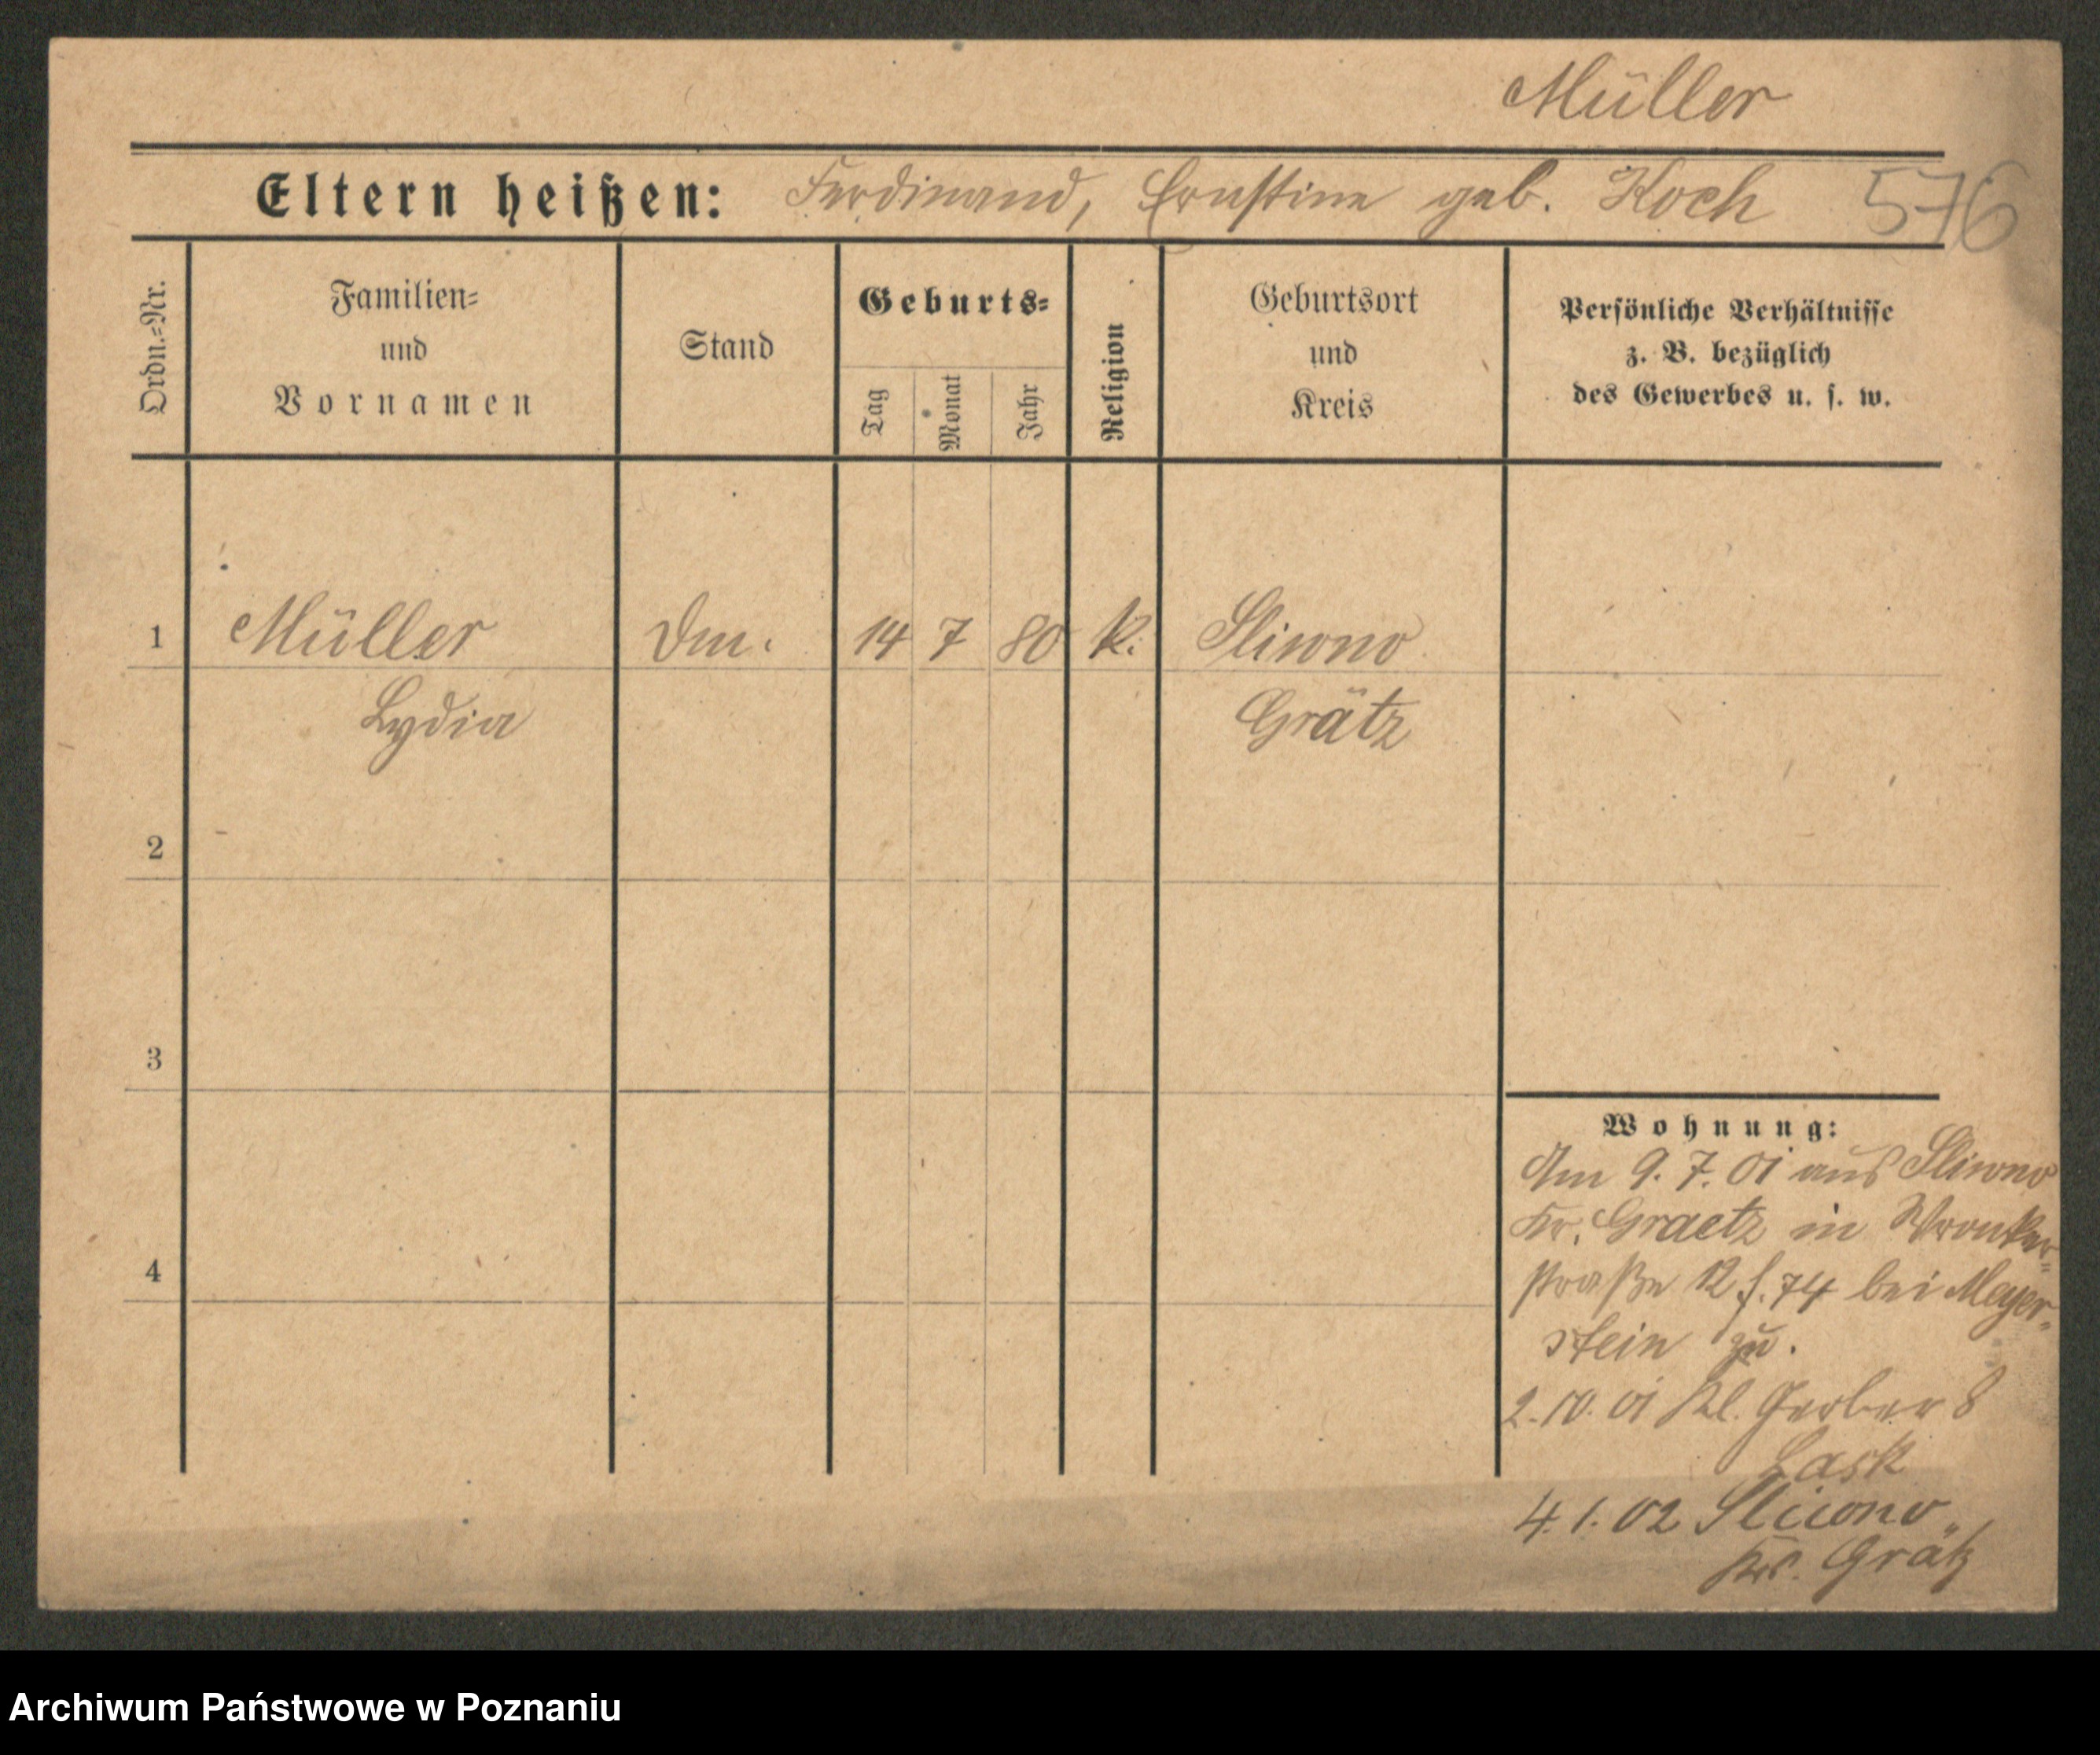 Müller
Eltern heißen: Ferdinand, Ernstine geb. Koch 576
Ordn.=Nr.
Familien=
und
Vornamen
Stand
Geburts=
Tag
Monat
Jahr
Religion
Geburtsort
und
Kreis
Persönliche Verhältnisse
z. B. bezüglich
des Gewerbes u. s. w.
1 Müller Dm. 14 7 80 k. Sliwno
Lydia Grätz
2
3
4
Wohnung:
Am 9.7.01 aus Sliwno
Kr. Graetz in Wronker=
straße 12 f. 74 bei Meyer=
stein zu.
2.10.01 Kl. Gerber 8
Lask
4.1.02 Sliwno
Krs. Grätz
Archiwum Państwowe w Poznaniu